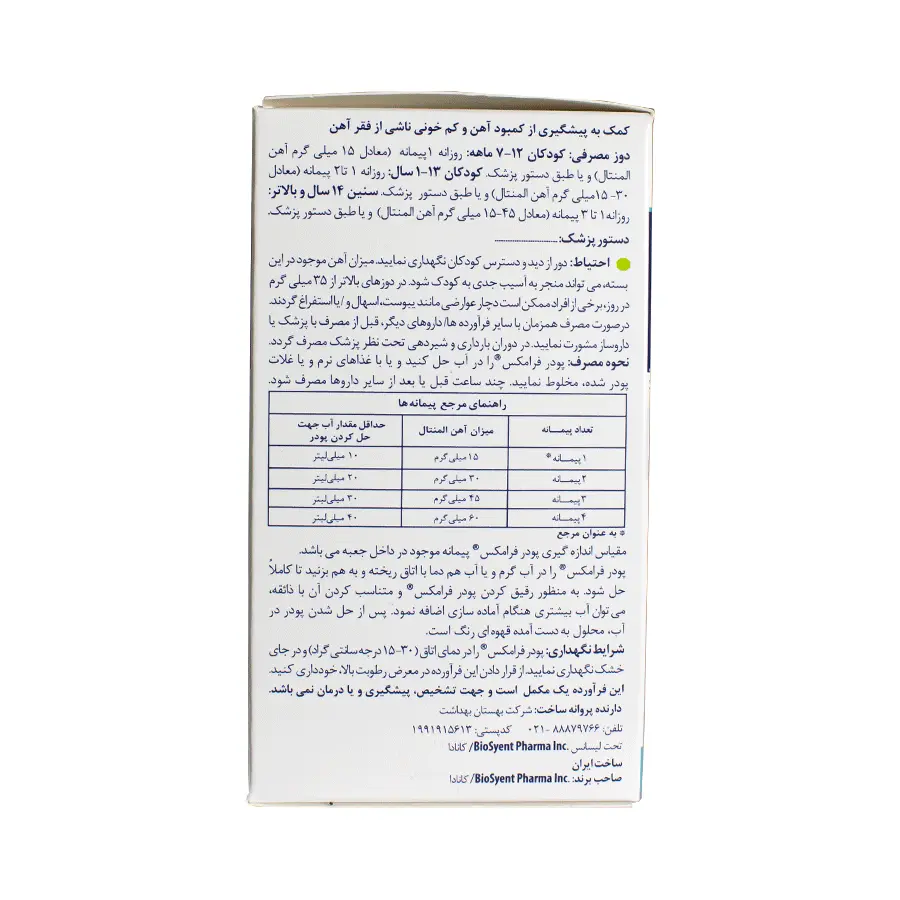 کمک به پیشگیری از کمبود آهن و کم خونی ناشی از فقر آهن
دوز مصرفی: کودکان ۱۲-۷ ماهه: روزانه ۱پیمانه (معادل ۱۵ میلی گرم آهن
المنتال) و یا طبق دستور پزشک. کودکان ۱۳-۱ سال: روزانه ۱ تا۲ پیمانه (معادل
۳۰- ۱۵میلی گرم آهن المنتال) و یا طبق دستور پزشک. سنین ۱۴ سال و بالاتر:
روزانه ۱ تا ۳ پیمانه (معادل ۴۵-۱۵ میلی گرم آهن المنتال) و یا طبق دستور پزشک.
دستور پزشک: ............................
احتیاط: دور از دید و دسترس کودکان نگهداری نمایید. میزان آهن موجود در این
بسته، می تواند منجر به آسیب جدی به کودک شود. در دوزهای بالاتر از ۳۵ میلی گرم
در روز، برخی از افراد ممکن است دچار عوارضی مانند یبوست، اسهال و /یا استفراغ گردند.
درصورت مصرف همزمان با سایر فرآورده ها/داروهای دیگر، قبل از مصرف با پزشک یا
داروساز مشورت نمایید. در دوران بارداری و شیردهی تحت نظر پزشک مصرف گردد.
نحوه مصرف: پودر فرامکس® را در آب حل کنید و یا با غذاهای نرم و یا غلات
پودر شده، مخلوط نمایید. چند ساعت قبل یا بعد از سایر داروها مصرف شود.
راهنمای مرجع پیمانه ها
تعداد پیمـــانه میزان آهن المنتال حداقل مقدار آب جهت
حل کردن پودر
۱ پیمـــانه * ۱۵ میلی گرم ۱۰ میلی لیتر
۲ پیمـــانه ۳۰ میلی گرم ۲۰ میلی لیتر
۳ پیمـــانه ۴۵ میلی گرم ۳۰ میلی لیتر
۴ پیمـــانه ۶۰ میلی گرم ۴۰ میلی لیتر
* به عنوان مرجع
مقیاس اندازه گیری پودر فرامکس® پیمانه موجود در داخل جعبه می باشد.
پودر فرامکس® را در آب گرم و یا آب هم دما با اتاق ریخته و به هم بزنید تا کاملاً
حل شود. به منظور رقیق کردن پودر فرامکس® و متناسب کردن آن با ذائقه،
می توان آب بیشتری هنگام آماده سازی اضافه نمود. پس از حل شدن پودر در
آب، محلول به دست آمده قهوه ای رنگ است.
شرایط نگهداری: پودر فرامکس® را در دمای اتاق (۳۰-۱۵ درجه سانتی گراد) و در جای
خشک نگهداری نمایید. از قرار دادن این فرآورده در معرض رطوبت بالا، خودداری کنید.
این فرآورده یک مکمل است و جهت تشخیص، پیشگیری و یا درمان نمی باشد.
دارنده پروانه ساخت: شرکت بهستان بهداشت
تلفن: ۸۸۸۷۹۷۶۶ -۰۲۱ کدپستی: ۱۹۹۱۹۱۵۶۱۳
تحت لیسانس BioSyent Pharma Inc./ کانادا
ساخت ایران
صاحب برند: BioSyent Pharma Inc./ کانادا